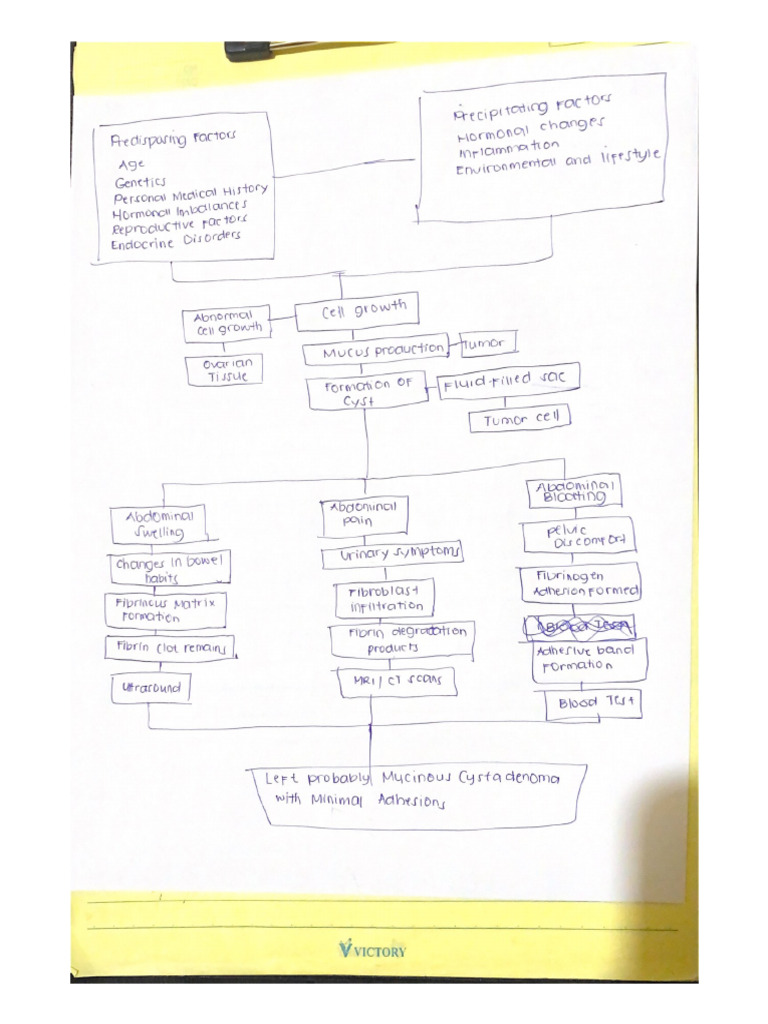 Predisposing Factors
Age
Genetics
Personal Medical History
Hormonal Imbalances
Reproductive Factors
Endocrine Disorders
Precipitating Factors
Hormonal changes
Inflammation
Environmental and lifestyle
Cell growth
Abnormal
Cell growth
Ovarian
Tissue
Mucus production
Tumor
Formation of
Cyst
Fluid-filled sac
Tumor cell
Abdominal
swelling
Changes in bowel
habits
Fibrinous Matrix
Formation
Fibrin Clot remains
Ultrasound
Abdominal
pain
Urinary symptoms
Fibroblast
infiltration
Fibrin degradation
products
MRI/CT scans
Abdominal
Bloating
Pelvic
Discomfort
Fibrinogen
Adhesion Formed
Adhesive band
Formation
Blood Test
Left probably Mucinous Cystadenoma
with Minimal Adhesions
VICTORY